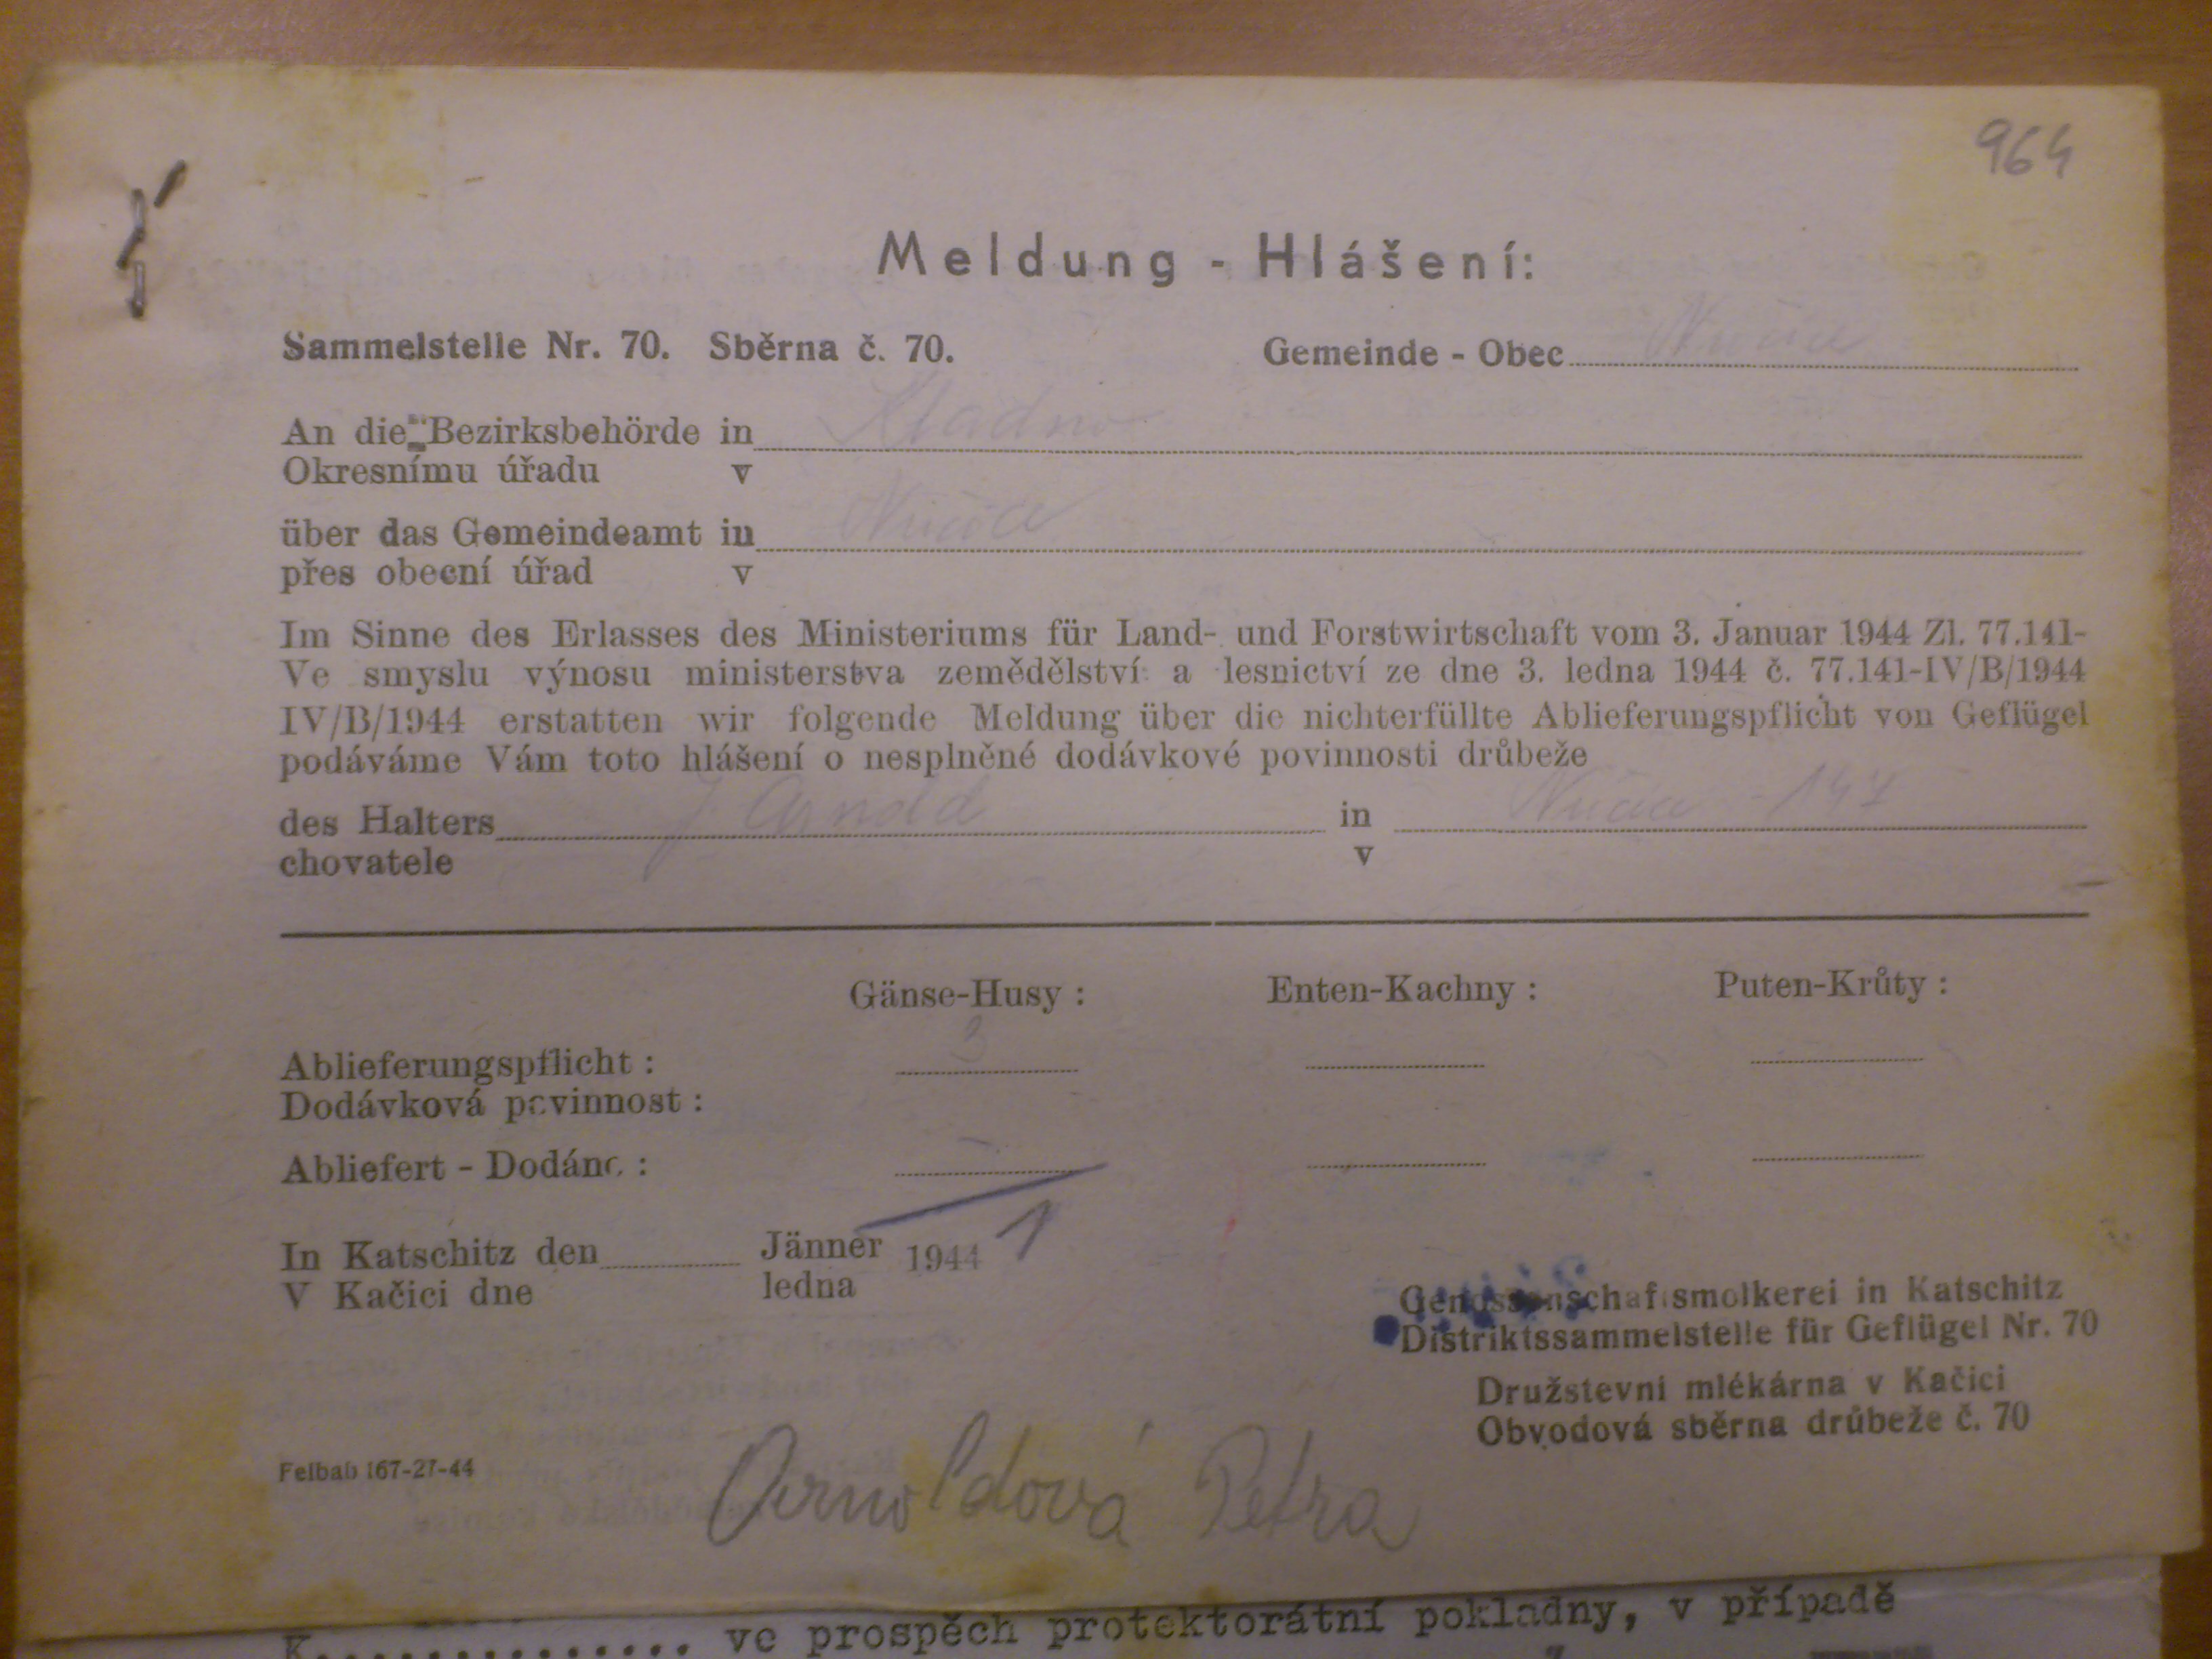 964
Meldung - Hlášení:
Sammelstelle Nr. 70. Sběrna č. 70. Gemeinde - Obec Nučice
An die Bezirksbehörde in Kladno
Okresnímu úřadu v
über das Gemeindeamt in Nučice
přes obecní úřad v
Im Sinne des Erlasses des Ministeriums für Land- und Forstwirtschaft vom 3. Januar 1944 Zl. 77.141-
Ve smyslu výnosu ministerstva zemědělství a lesnictví ze dne 3. ledna 1944 č. 77.141-IV/B/1944
IV/B/1944 erstatten wir folgende Meldung über die nichterfüllte Ablieferungspflicht von Geflügel
podáváme Vám toto hlášení o nesplněné dodávkové povinnosti drůbeže
des Halters J. Arnold in Nučice 147
chovatele v
Gänse-Husy: Enten-Kachny: Puten-Krůty:
Ablieferungspflicht: 3
Dodávková povinnost:
Abliefert - Dodáno: -
In Katschitz den Jänner 1944 1
V Kačici dne ledna
Genossenschaftsmolkerei in Katschitz
Distriktssammelstelle für Geflügel Nr. 70
Družstevní mlékárna v Kačici
Obvodová sběrna drůbeže č. 70
Felbab 167-27-44
Arnoldová Petra
K.............. ve prospěch protektorátní pokladny, v případě